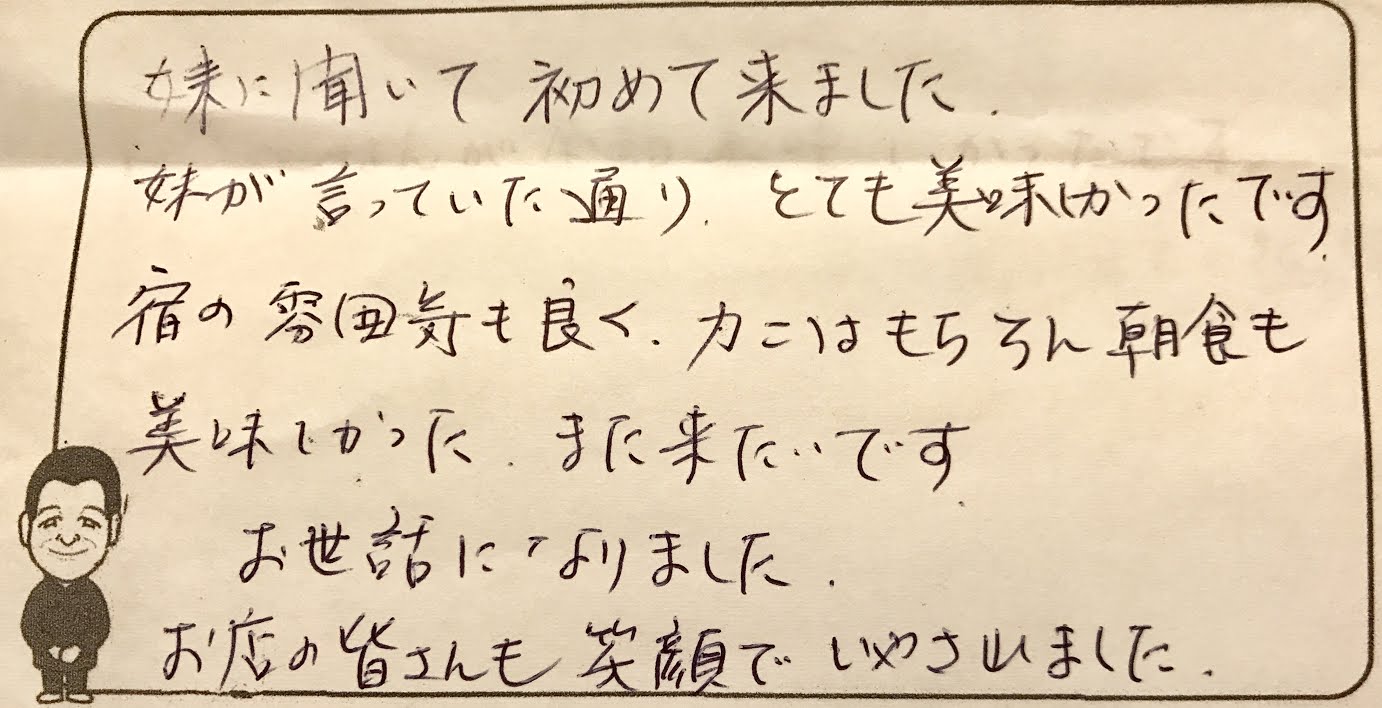 妹に聞いて 初めて来ました.
妹が言っていた通り. とても美味しかったです.
宿の雰囲気も良く. カニはもちろん朝食も
美味しかった. また来たいです.
お世話になりました.
お店の皆さんも笑顔でいやされました.